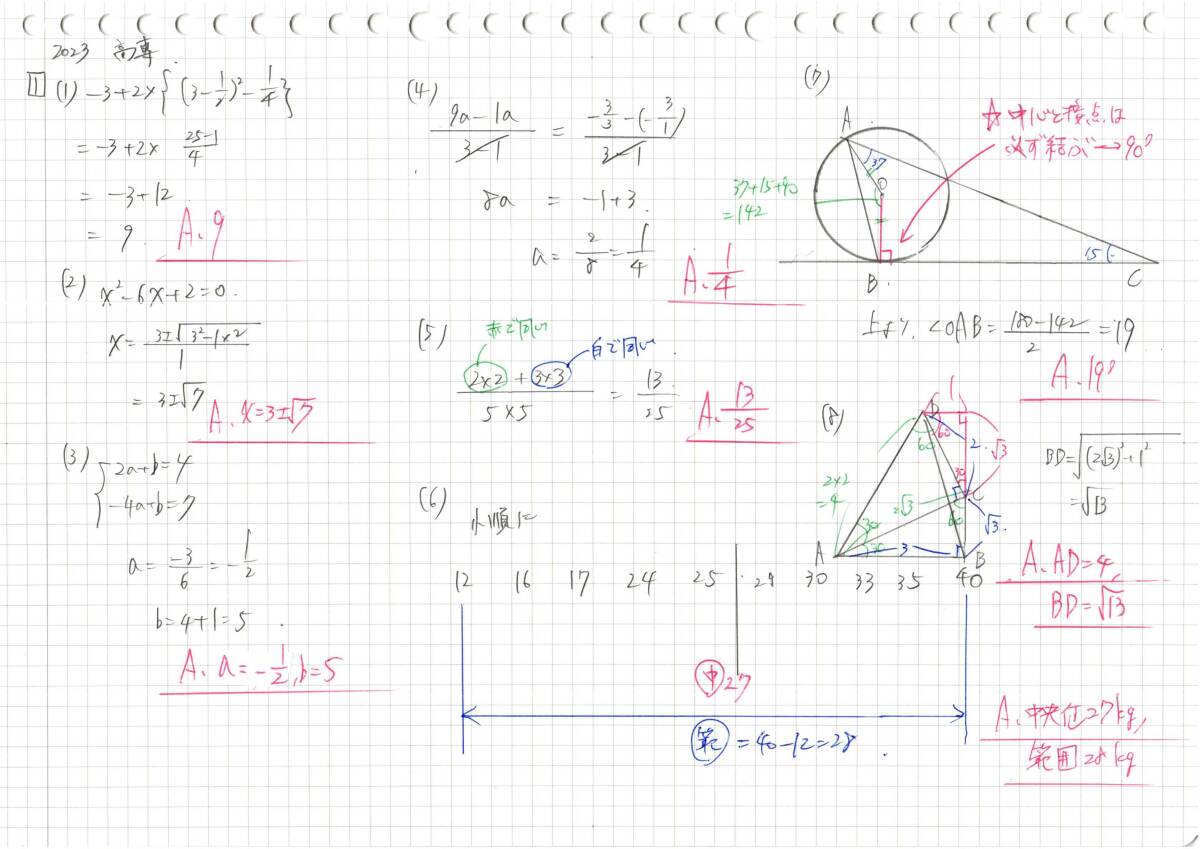 2023 高専
1 (1) -3+2×{(3-1/2)²-1/4}
=-3+2× 25-1/4
= -3+12
= 9. A. 9
(2) x²-6x+2=0.
x= 3±√3²-1×2/1
= 3±√7
A. x=3±√7
(3) {2a+b=4
-4a+b=7
a= -3/6 = -1/2
b=4+1=5.
A. a=-1/2, b=5
(4)
9a-1a/3-1 = -3/3-(-3/1)/3-1
8a = -1+3.
a= 2/8 = 1/4
A. 1/4
(5)
赤で同じ
白で同い
2×2+3×3/5×5 = 13/25
A. 13/25
(6)
小順に
12 16 17 24 25 29 30 33 35 40
中 27
範 =40-12=28.
A. 中央位27kg,
範囲28kg
(7)
☆中心と接点は
必ず結ぶ→90°
A
37
O
37+15+90
=142
15
B.
C
上より. ∠OAB= 180-142/2 =19
A. 19°
(8)
D
1
60
60
2
√3
30
2×2
=4
2√3
C
60
√3.
30
30
3
A
B
BD=√(2√3)²+1²
=√13
A. AD=4,
BD=√13